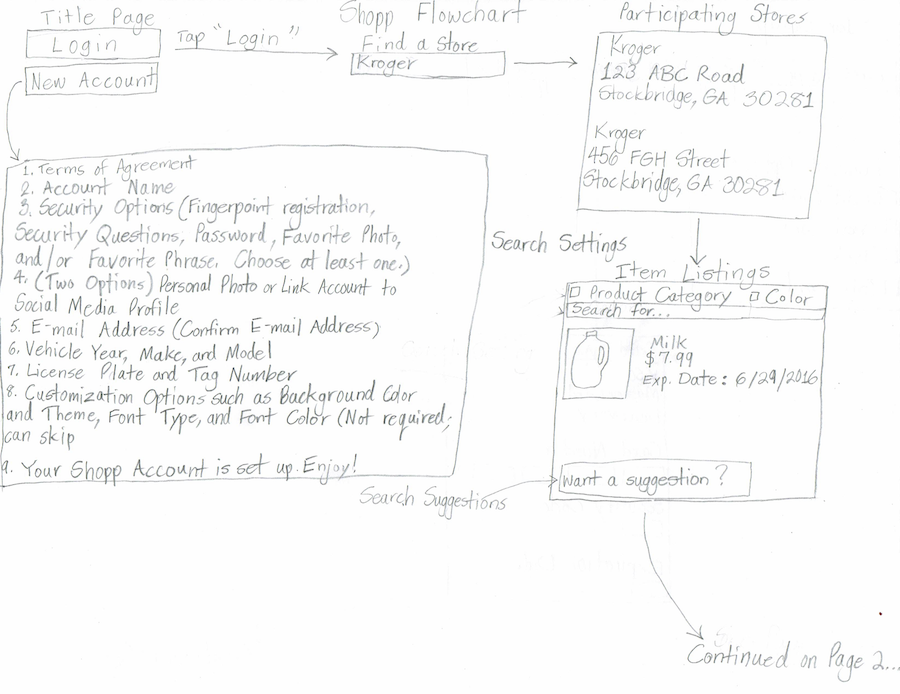 Shopp Flowchart
Title Page
Login
New Account
Tap "Login"
Find a Store
Kroger
Participating Stores
Kroger
123 ABC Road
Stockbridge, GA 30281
Kroger
456 FGH Street
Stockbridge, GA 30281
1. Terms of Agreement
2. Account Name
3. Security Options (Fingerpoint registration,
Security Questions, Password, Favorite Photo,
and/or Favorite Phrase. Choose at least one.)
4. (Two Options) Personal Photo or Link Account to
Social Media Profile
5. E-mail Address (Confirm E-mail Address)
6. Vehicle Year, Make, and Model
7. License Plate and Tag Number
8. Customization Options such as Background Color
and Theme, Font Type, and Font Color (Not required;
can skip
9. Your Shopp Account is set up. Enjoy!
Search Settings
Item Listings
Product Category Color
Search for...
Milk
$7.99
Exp. Date: 6/29/2016
Want a suggestion?
Search Suggestions
Continued on Page 2...